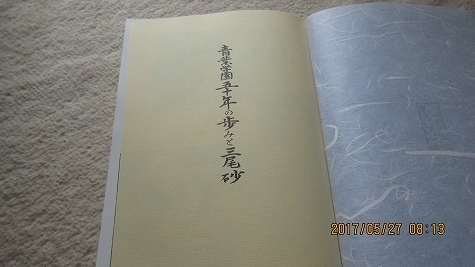 青葉学園五十年の歩みと三尾砂
2017/05/27 08:13